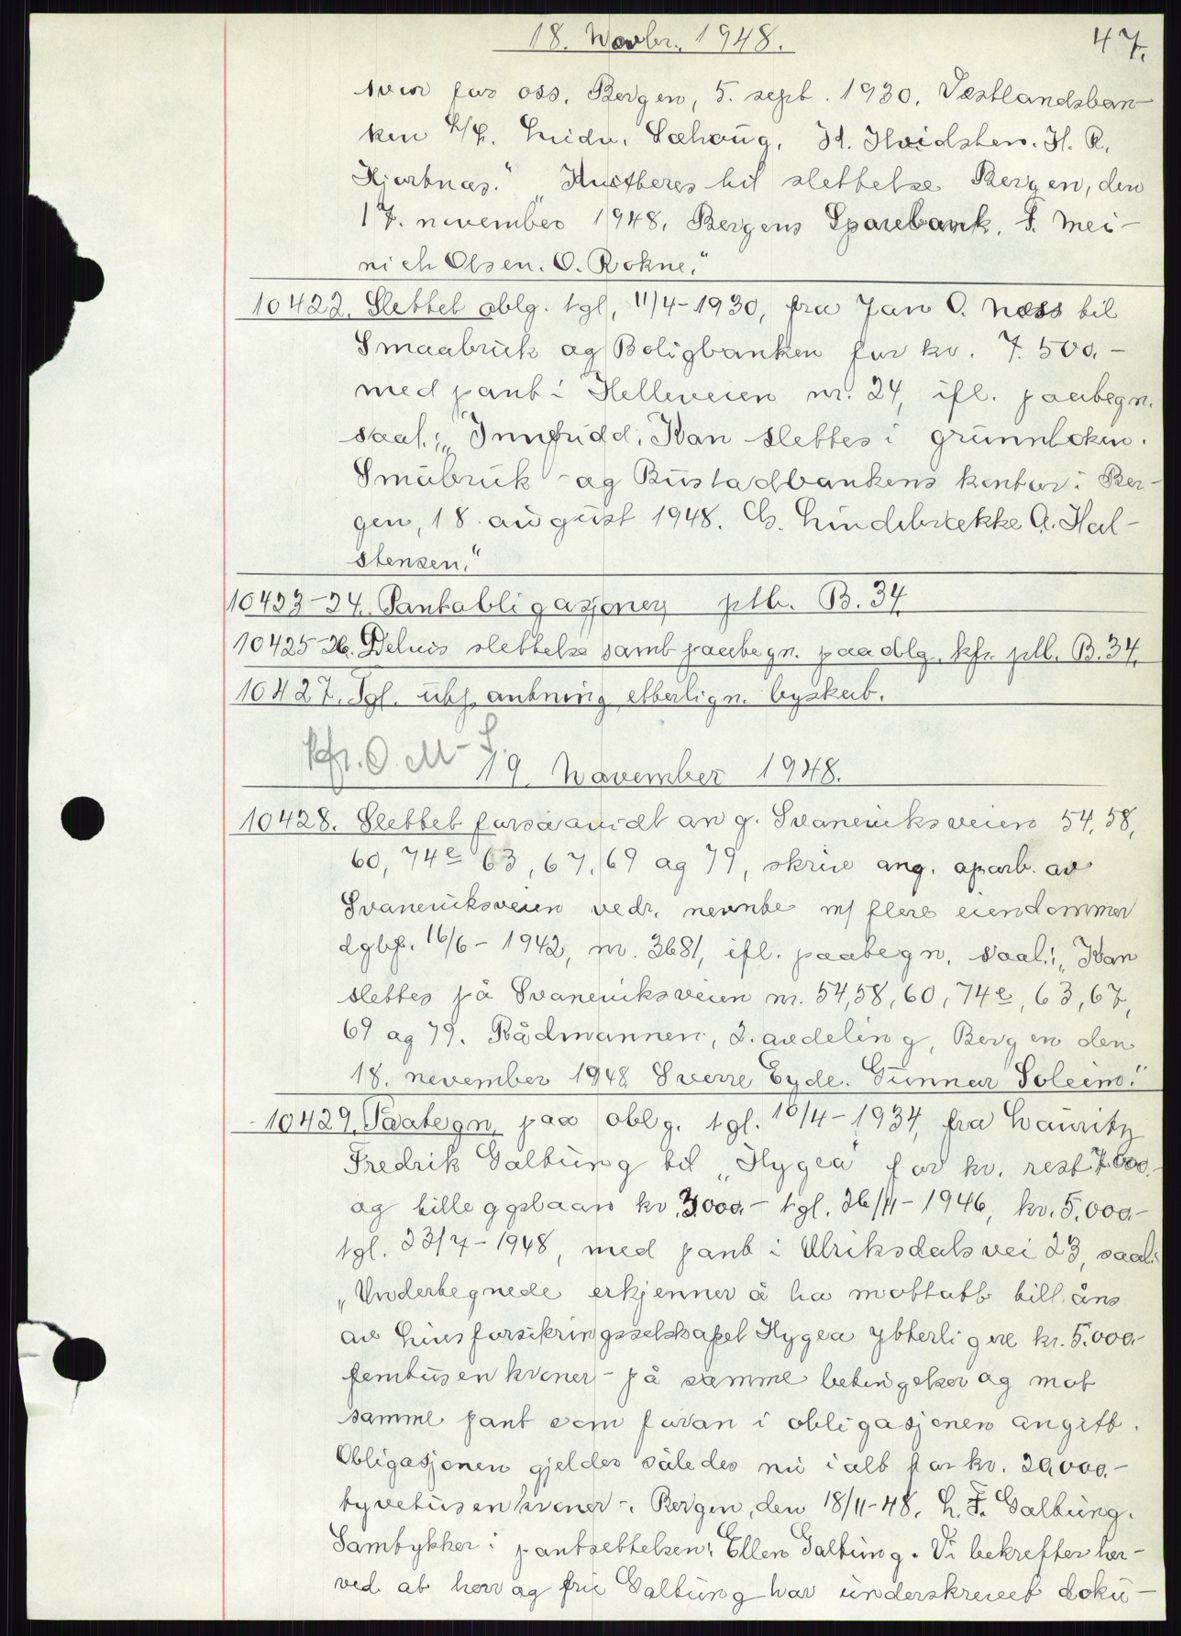 18. Novbr. 1948.
47.
svar for oss. Bergen, 5. sept. 1930. Vestlandsban-
ken A/S. Ludv. Sæhaug. H. Hvidsten. H. R.
Hjartnæs." "Kvitteres til slettelse Bergen, den
17. november 1948. Bergens Sparebank. F. Mei-
nich Olsen. O. Rokne."
10422. Slettet oblg. tgl. 11/4-1930, fra Jan O. Næss til
Smaabruk og Boligbanken for kr. 7.500.-
med pant i Helleveien nr. 24, ifl. paabegn.
saal.: "Innfridd. Kan slettes i grunnboken.
Småbruk- og Bustadbankens kontor i Ber-
gen, 18. august 1948. Chs. Lindebrække A. Hal-
stensen."
10423-24. Pantobligasjoner, ptb. B. 34.
10425-26. Delvis slettelse samt paabegn. paa oblg. kfr. ptb. B. 34.
10427. Tgl. utpantning etterlign. byskat.
kfr. O. M-S.
19. November 1948.
10428. Slettet forsaavidt ang. Svaneviksveien 54, 58,
60, 74e 63, 67, 69 og 79, skriv ang. oparb. av
Svaneviksveien vedr. nevnte m/ flere eiendommer
dgbf. 16/6-1942, nr. 3681, ifl. paabegn. saal.: "Kan
slettes på Svaneviksveien nr. 54, 58, 60, 74e, 63, 67,
69 og 79. Rådmannen, 2. avdeling, Bergen den
18. november 1948 Sverre Eyde. Gunnar Soleim."
10429. Paategn. paa oblg. tgl. 10/4-1934, fra Lauritz
Fredrik Galtung til "Hygea" for kr. rest 7.000.-
og tilleggslaan kr. 3.000.- tgl. 26/11-1946, kr. 5.000.-
tgl. 23/7-1948, med pant i Ulriksdalsvei 23, saal.:
"Undertegnede erkjenner å ha mottatt till åns
av Livsforsikringsselskapet Hygea ytterligere kr. 5.000.-
femtusen kroner - på samme betingelser og mot
samme pant som foran i obligasjonen angitt.
Obligasjonen gjelder således nu i alt for kr. 20.000.-
tyvetusen kroner -. Bergen, den 18/11-48. L. F. Galtung.
Samtykker i pantsettelsen: Ellen Galtung. Vi bekrefter her-
ved at herr og fru Galtung har underskrevet doku-